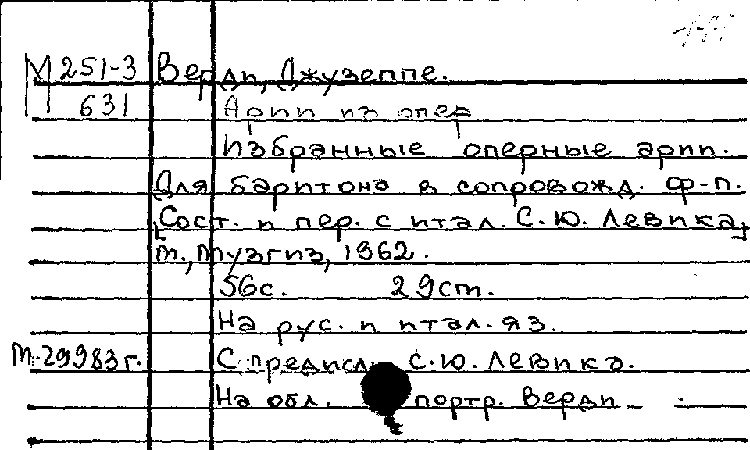 М 251-3 Верди, Джузеппе.
631 Арии из опер
Избранные оперные арии.
Для баритона в сопровожд. ф-п.
[Сост. и пер. с итал. С. Ю. Левика]
М., Музгиз, 1962.
56с. 29см.
На рус. и итал. яз.
М-29983г. С предисл. С.Ю. Левика.
На обл. портр. Верди